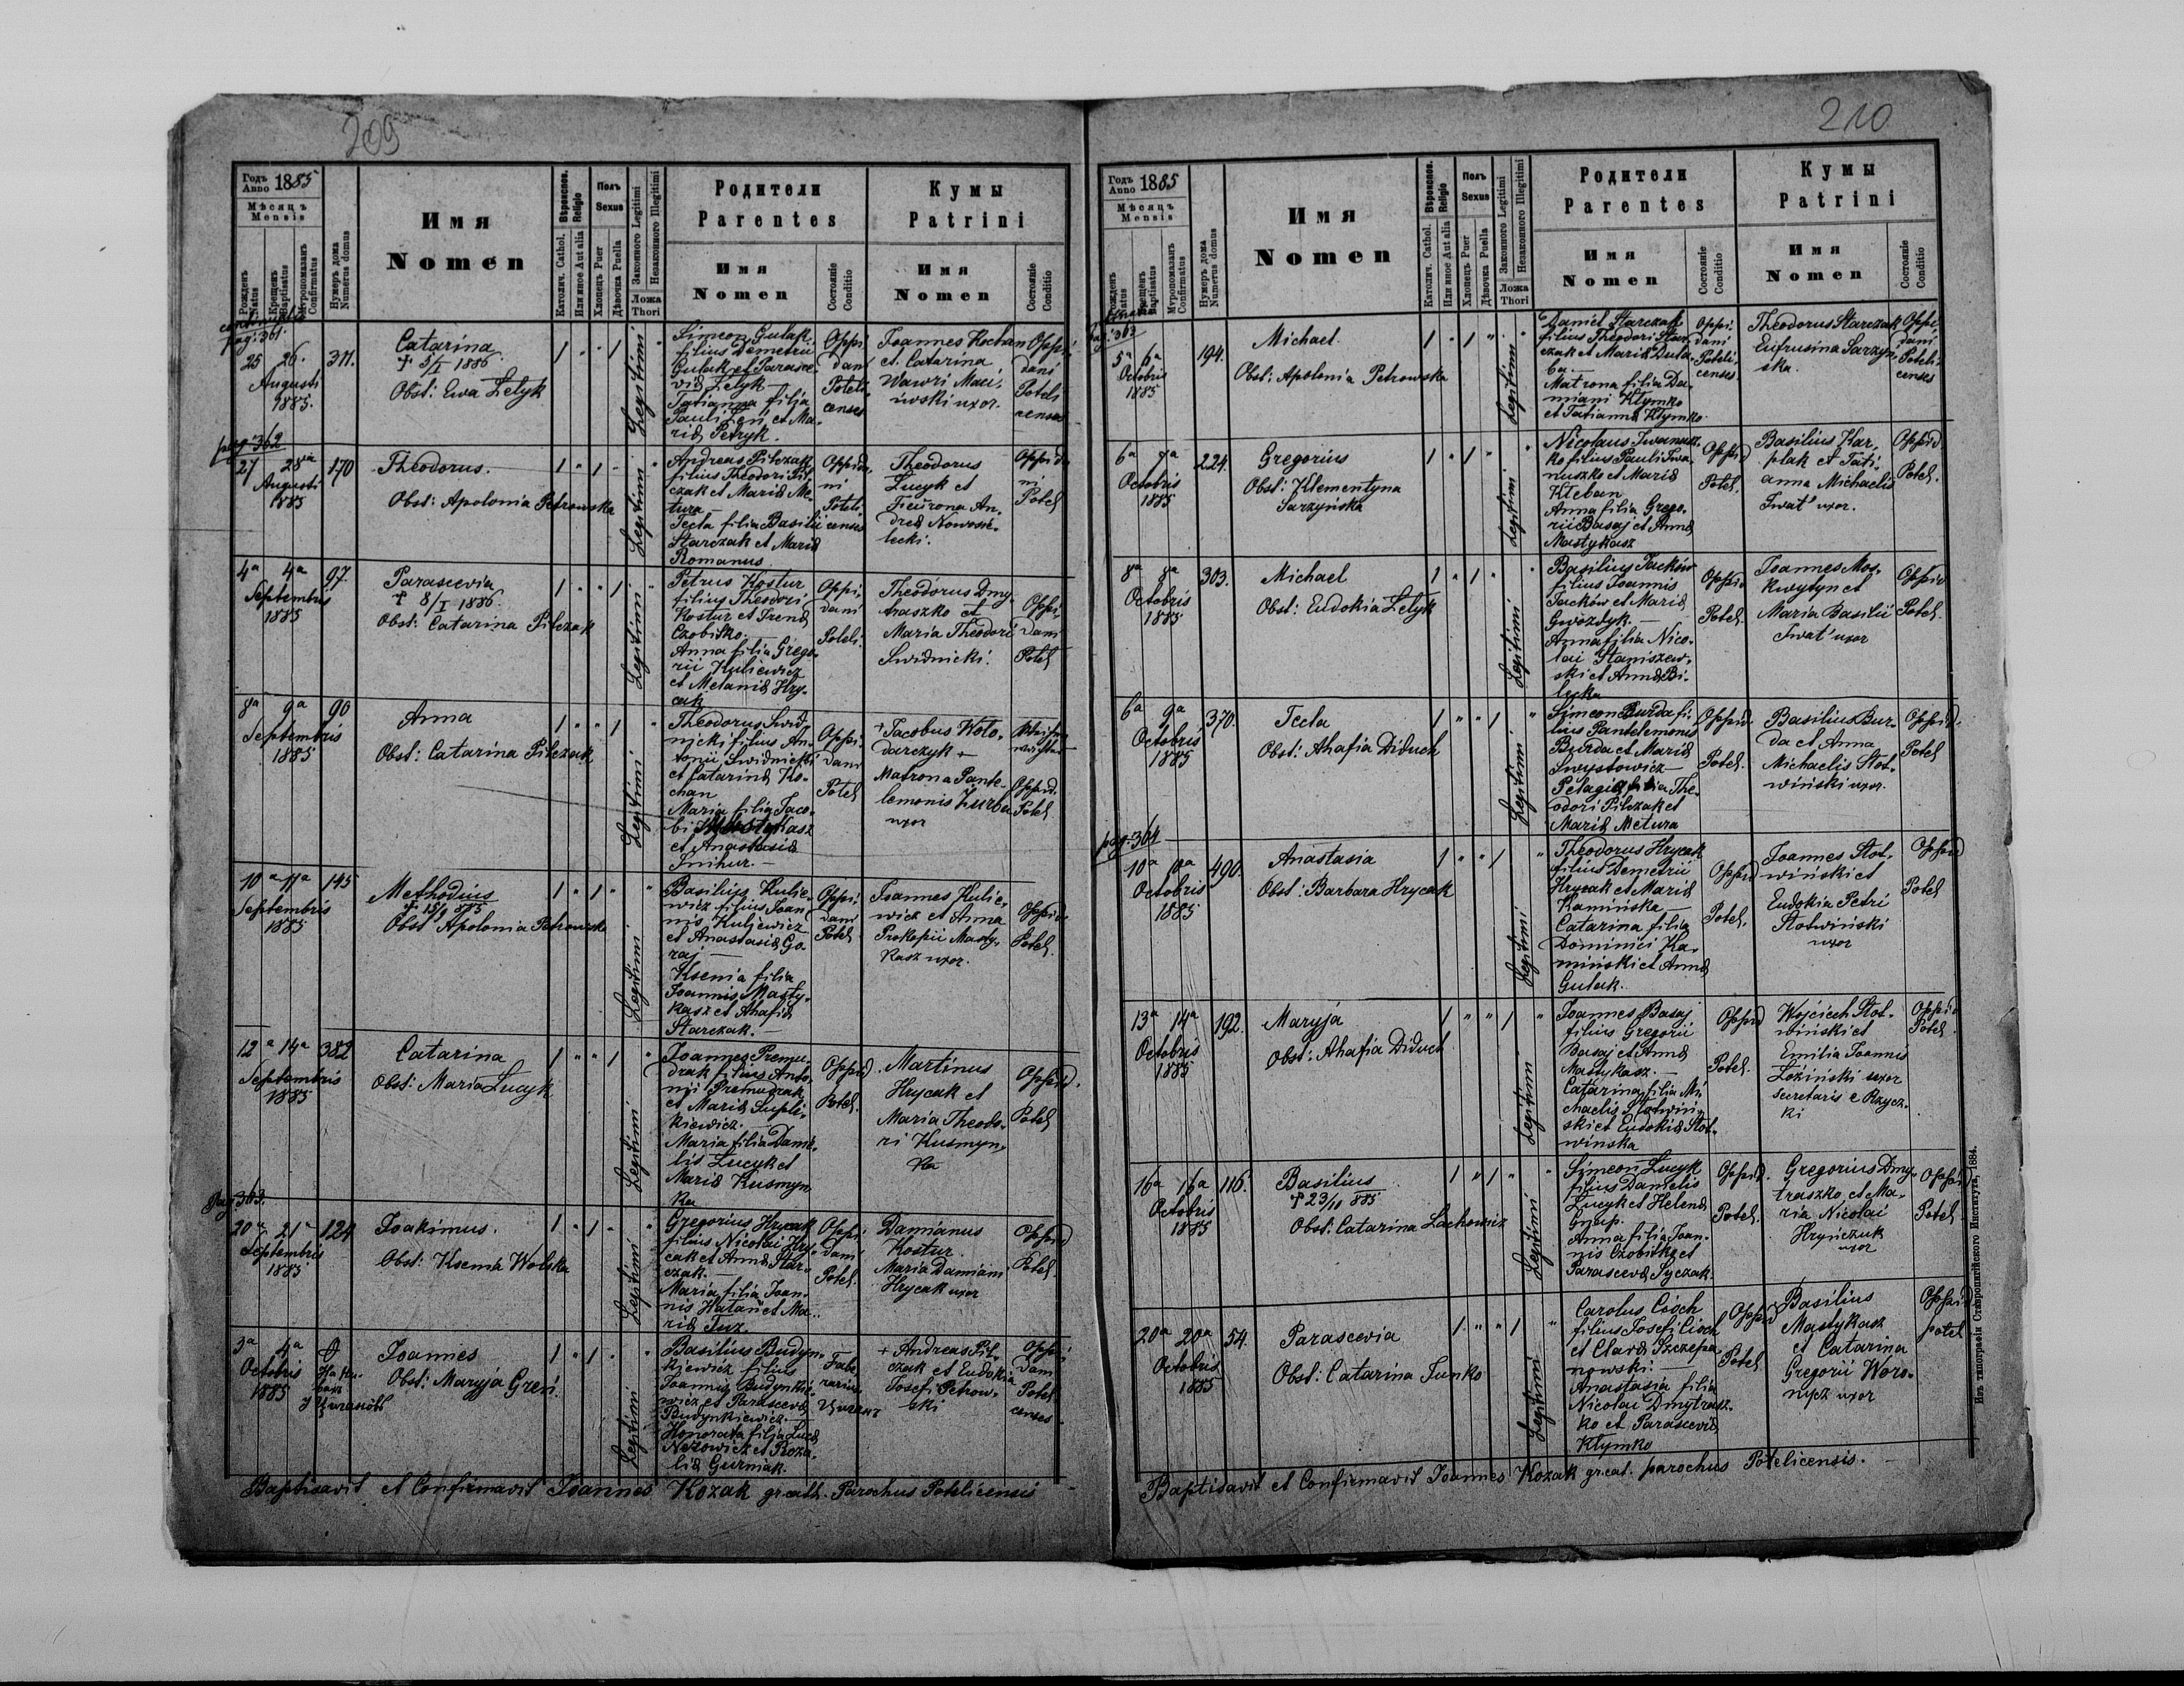 209
Годъ Anno 1885
Мѣсяцъ
Mensis
Рожденъ Natus
Крещенъ Baptisatus
Мѵропомазанъ Confirmatus
Нумеръ дома Numerus domus
Имя
Nomen
Вѣроиспов. Religio
Католич. Cathol.
Или иное Aut alia
Полъ
Sexus
Хлопецъ Puer
Дѣвочка Puella
Законного Legitimi
Незаконного Illegitimi
Ложа
Thori
Родители
Parentes
Имя
Nomen
Состояніе
Conditio
Кумы
Patrini
Имя
Nomen
Состояніе
Conditio
pag: 361.
25 26.
Augusti
1885.
311.
Catarina
† 5/I 1886.
Obst: Ewa Zelyk
1 " " 1 "
Legitimi
Simeon Gulak
filius Demetrii
Gulak et Parasce-
viæ Zelyk —
Tatianna filia
Pauli Zen et Ma-
riæ Petryk.
Oppi
dani
Poteli
censes
Joannes Kochan
et Catarina
Wawri Maci-
owski uxor.
Oppi
dani
Poteli
censes
pag: 362
27 28va
Augusti
1885
170
Theodorus.
Obst: Apolonia Petrowska
1 " 1 " "
Legitimi
Andreas Pilczak
filius Theodori Pil-
czak et Mariæ Me-
tura —
Tecla filia Basilii
Starczak et Mariæ
Romanus
Oppida
ni
Poteli
censes
Theodorus
Lucyk et
An-
dreæ Nowosie-
lecki.
Oppida
ni
Potel
4a 4a
Septembris
1885
97
Parascevia
† 8/I 1886.
Obst: Catarina Pilczak
1 " " 1 "
Legitimi
Petrus Kostur
filius Theodori
Kostur et Irenæ
Czobitko. —
Anna filia Grego-
rii Kuliewicz
et Melaniæ Hry-
cak
Oppi-
dani
Poteli:
Theodorus Dmy-
traszko et
Maria Theodori
Swidnicki.
Oppi-
dani
Potel
8a 9a
Septembris
1885
90
Anna
Obst: Catarina Pilczak
1 " " 1 "
Legitimi
Theodorus Swid-
nicki filius An-
tonii Swidnicki
et Catarinæ Ko-
chan
Maria filia Jaco-
bi Mastykasz
et Anastasiæ
Snihur. —
Oppi-
dani
Potel
+ Jacobus Woło-
darczyk +
Matrona Pante-
lemonis Żurba
uxor
Oppid.
Potel
10a 11a
Septembris
1885
145
Methodius
Obst: Apolonia Petrowska
1 " 1 " "
Legitimi
Basilius Kulie-
wicz filius Joan-
nis Kuljewicz
et Anastasiæ Go-
raj —
Ksenia filia
Joannis Masty-
kasz et Ahafiæ
Starczak. —
Oppi-
dani
Potel
Joannes Kulie-
wicz et Anna
Prokopii Masty-
kasz uxor.
Oppid.
Potel.
12a 14a
Septembris
1885
382
Catarina
Obst: Maria Lucyk
1 " " 1 "
Legitimi
Joannes Premu-
drak filius Anto-
nii Premudrak
et Mariæ Supli-
kiewicz. —
Maria filia Danie-
lis Lucyk et
Mariæ Kusmyn
ka
Oppid.
Potel.
Martinus
Hrycak et
Maria Theodo-
ri Kusmyn-
ka
Oppid.
Potel
pag: 363.
20a 21a
Septembris
1885
124
Joakimus.
Obst: Ksenia Wolska
1 " 1 " "
Legitimi
Gregorius Hrycak
filius Nicolai Hry-
cak et Annæ Star-
czak. —
Maria filia Joan-
nis Hatan et Ma-
riæ Juz.
Oppi-
dani
Potel.
Damianus
Kostur.
Maria Damiani
Hrycak uxor
Oppid
Potel.
3a 4a
Octobris
1885
Joannes
Obst: Maryja Greń.
1 " 1 " "
Legitimi
Basilius Budyn-
kiewicz filius
Joannis Budynkie-
wicz et Parasceviæ
Budynkiewicz. —
Honorata filja Lucæ
Nezowicz et Roza-
liæ Gurniak.
+ Andreas Pil-
czak et Eudokia
Josefi Petrow-
ski
Oppi
dani
Poteli
censes
Baptisavit et Confirmavit Joannes Kozak gr. cath. Parochus Potelicensis
210
Годъ Anno 1885
Мѣсяцъ
Mensis
Рожденъ Natus
Крещенъ Baptisatus
Мѵропомазанъ Confirmatus
Нумеръ дома Numerus domus
Имя
Nomen
Вѣроиспов. Religio
Католич. Cathol.
Или иное Aut alia
Полъ
Sexus
Хлопецъ Puer
Дѣвочка Puella
Законного Legitimi
Незаконного Illegitimi
Ложа
Thori
Родители
Parentes
Имя
Nomen
Состояніе
Conditio
Кумы
Patrini
Имя
Nomen
Состояніе
Conditio
pag: 363
5a 6a
Octobris
1885
194.
Michael
Obst: Apolonia Petrowska
1 " 1 " "
Legitimi
Daniel Starczak
filius Theodori Star-
czak et Mariæ Duda-
ba —
Matrona filia Da-
miani Kłymko
et Tatiannæ Kłymko.
Oppi-
dani
Poteli-
censes
Theodorus Starczak
Eufrusina Sarzyn-
ska.
Oppi-
dani
Poteli-
censes
6a 7a
Octobris
1885
224.
Gregorius
Obst: Klementyna
Sarzyńska
1 " 1 " "
Legitimi
Nicolaus Iwanusz-
ko filius Pauli Iwa-
nuszko et Mariæ
Kłeban
Anna filia Grego-
rii Basaj et Annæ
Mastykasz
Oppid
Potel.
Basilius Kar-
plak et Tati-
anna Michaelis
Iwat' uxor.
Oppid.
Potel.
8a 8a
Octobris
1885
303.
Michael
Obst: Eudokia Zelyk
1 " 1 " "
Legitimi
Basilius Jacków
filius Joannis
Jacków et Mariæ
Gwozdyk. —
Anna filia Nico-
lai Staniszew-
ski et Annæ Bi-
lecka
Oppid
Potel.
Joannes Mos-
kwytyn et
Maria Basilii
Iwat' uxor
Oppid
Potel.
6a 9a
Octobris
1885
370.
Tecla
Obst: Ahafia Diduch
1 " " 1 "
Legitimi
Simeon Burda fi-
lius Pantelemonis
Burda et Mariæ
Swystowicz —
Pelagia filia The-
odori Pilczak et
Mariæ Metura
Oppid.
Potel.
Basilius Bur-
da et Anna
Michaelis Słot-
wiński uxor.
Oppid.
Potel
pag: 364
10a 11a
Octobris
1885
490.
Anastasia
Obst: Barbara Hrycak
1 " " 1 "
Legitimi
Theodorus Hrycak
filius Demetrii
Hrycak et Mariæ
Kamińska —
Catarina filia
Dominici Ka-
miński et Annæ
Gulak.
Oppid
Potel.
Joannes Słot-
wiński et
Eudokia Petri
Słotwiński
uxor
Oppid
Potel
13a 14a
Octobris
1885
192.
Maryja
Obst: Ahafia Diduch
1 " " 1 "
Legitimi
Joannes Basaj
filius Gregorii
Basaj et Annæ
Mastykasz. —
Catarina filia Mi-
chaelis Słotwiń-
ski et Eudokiæ Słot-
wińska
Oppid
Potel.
Wojciech Słot-
wiński et
Emilia Joannis
Łoziński uxor
secretaris e Rzycz-
ki
Oppid
Potel.
16a 16a
Octobris
1885
116.
Basilius
† 23/10 885
Obst: Catarina Lachowicz
1 " 1 " "
Legitimi
Simeon Lucyk
filius Danielis
Lucyk et Helenæ
Gnyp.
Anna filia Joan-
nis Czobitko et
Parasceviæ Syczak.
Oppid.
Potel.
Gregorius Dmy-
traszko et Ma-
ria Nicolai
Hryńczuk
uxor
Oppid
Potel
20a 20a
Octobris
1885
54.
Parascevia
Obst: Catarina Funko
1 " " 1 "
Legitimi
Carolus Cioch
filius Josefi Cioch
et Claræ Szczepa
nowski. —
Anastasia filia
Nicolai Dmytrasz-
ko et Parasceviæ
Kłymko
Oppid
Potel
Basilius
Mastykasz
et Catarina
Gregorii Woro-
nycz uxor
Oppid
Potel
Baptisavit et Confirmavit Joannes Kozak gr. cat. parochus Potelicensis. —
Изъ типографіи Ставропигійского Института, 1884.